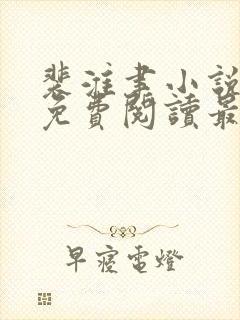 裴淮書小說
免費閱讀最
早寢電燈